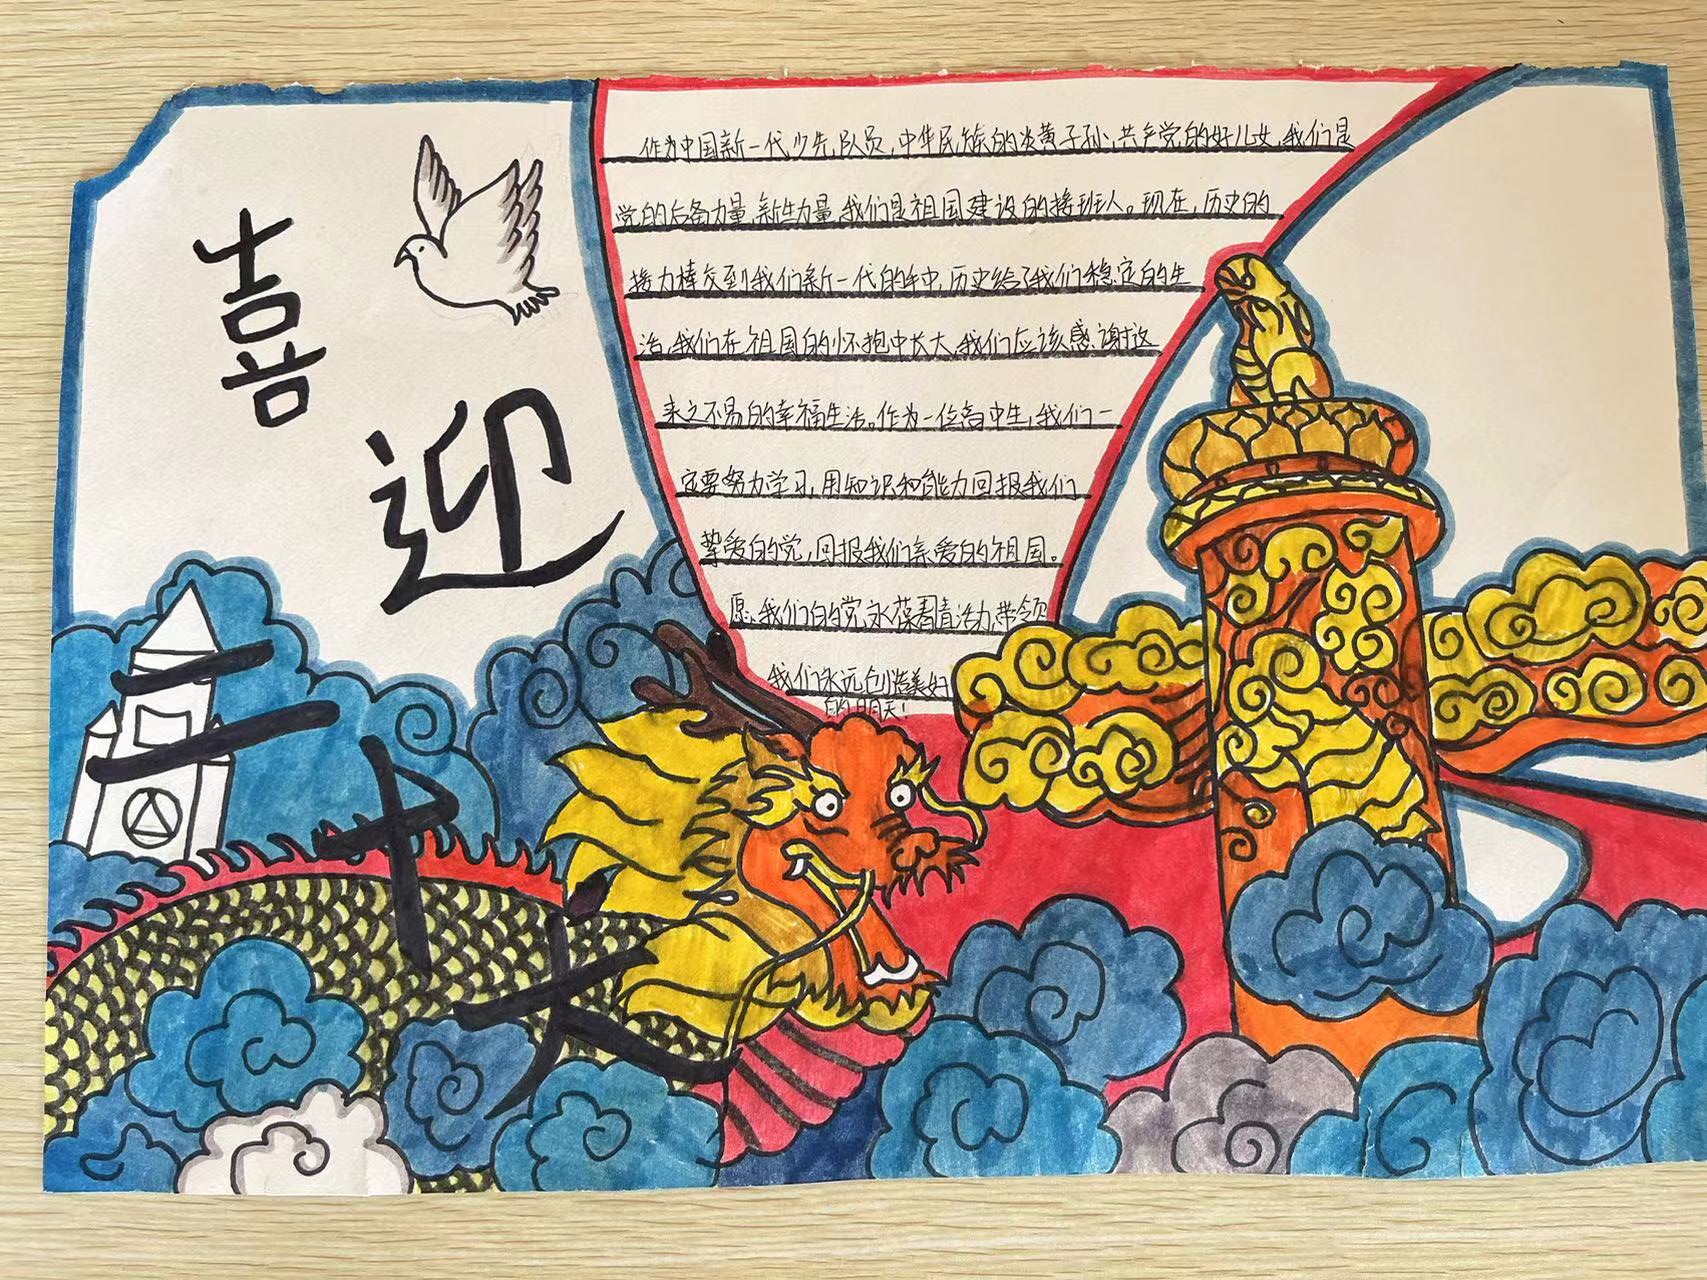 喜迎
二十大
作为中国新一代少先队员,中华民族的炎黄子孙,共产党的好儿女,我们是
党的后备力量,新生力量,我们是祖国建设的接班人。现在,历史的
接力棒交到我们新一代的手中,历史给了我们稳定的生
活,我们在祖国的怀抱中长大,我们应该感谢这
来之不易的幸福生活。作为一位高中生,我们一
定要努力学习,用知识和能力回报我们
挚爱的党,回报我们亲爱的祖国。
愿我们的党永葆青春活力,带领
我们永远创造美好
的明天!